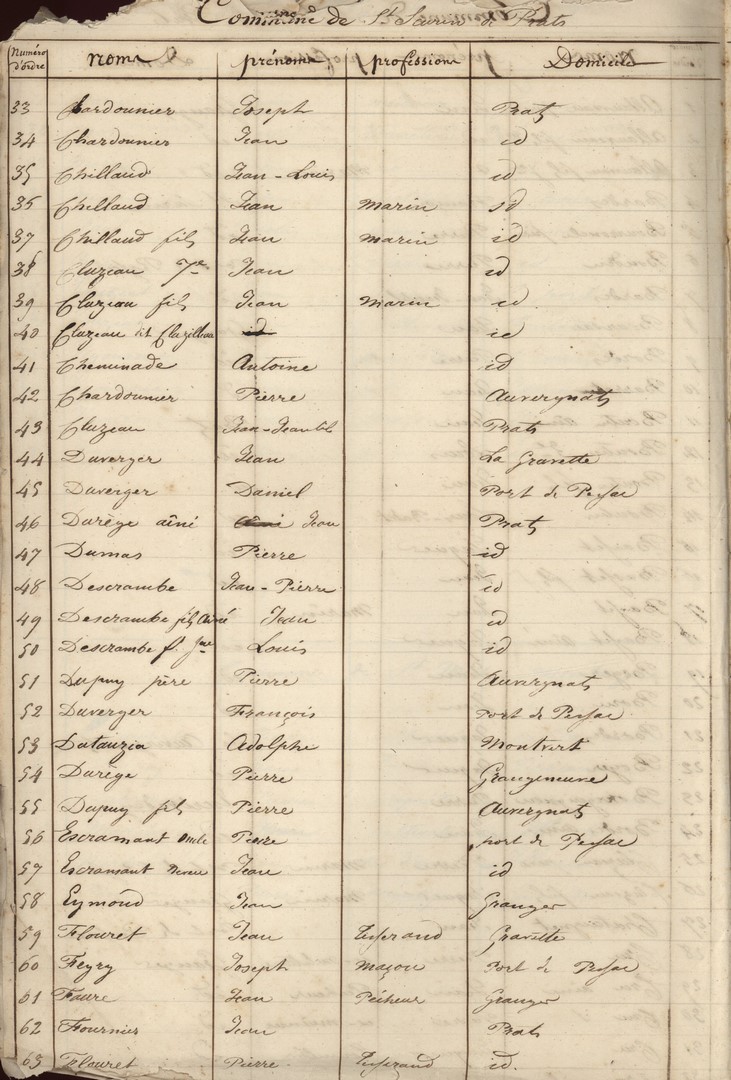 Commune de St Seurin de Prats
Numéro d'ordre noms prénoms professions Domicile
33 Chardounier Joseph Prats
34 Chardounier Jean id
35 Chillaud Jean-Louis id
35 Chillaud Jean marin id
37 Chillaud fils Jean marin id
38 Cluzeau Jean id
39 Cluzeau fils Jean marin id
40 Cluzeau dit Cluzilleau id id
41 Cheminade Antoine id
42 Chardounier Pierre Auvergnats
43 Cluzeau Jean- Prats
44 Duverger Jean La Gravette
45 Duverger Daniel Port de Pessac
46 Durège aîné Jean Prats
47 Dumas Pierre id
48 Descrambe Jean-Pierre id
49 Descrambe fils aîné Jean id
50 Descrambe f. jne Louis id
51 Dupuy père Pierre Auvergnats
52 Duverger François Port de Pessac
53 Datauzia Adolphe Montvert
54 Durège Pierre Grangeneuve
55 Dupuy fils Pierre Auvergnats
56 Escramant oncle Pierre port de Pessac
57 Escramant neveu Jean id
58 Eymond Jean Granger
59 Flouret Jean Tisserand Gravette
60 Feyry Joseph maçon Port de Pessac
61 Faure Jean Pêcheur Granger
62 Fournier Jean Prats
63 Flouret Pierre Tisserand id.